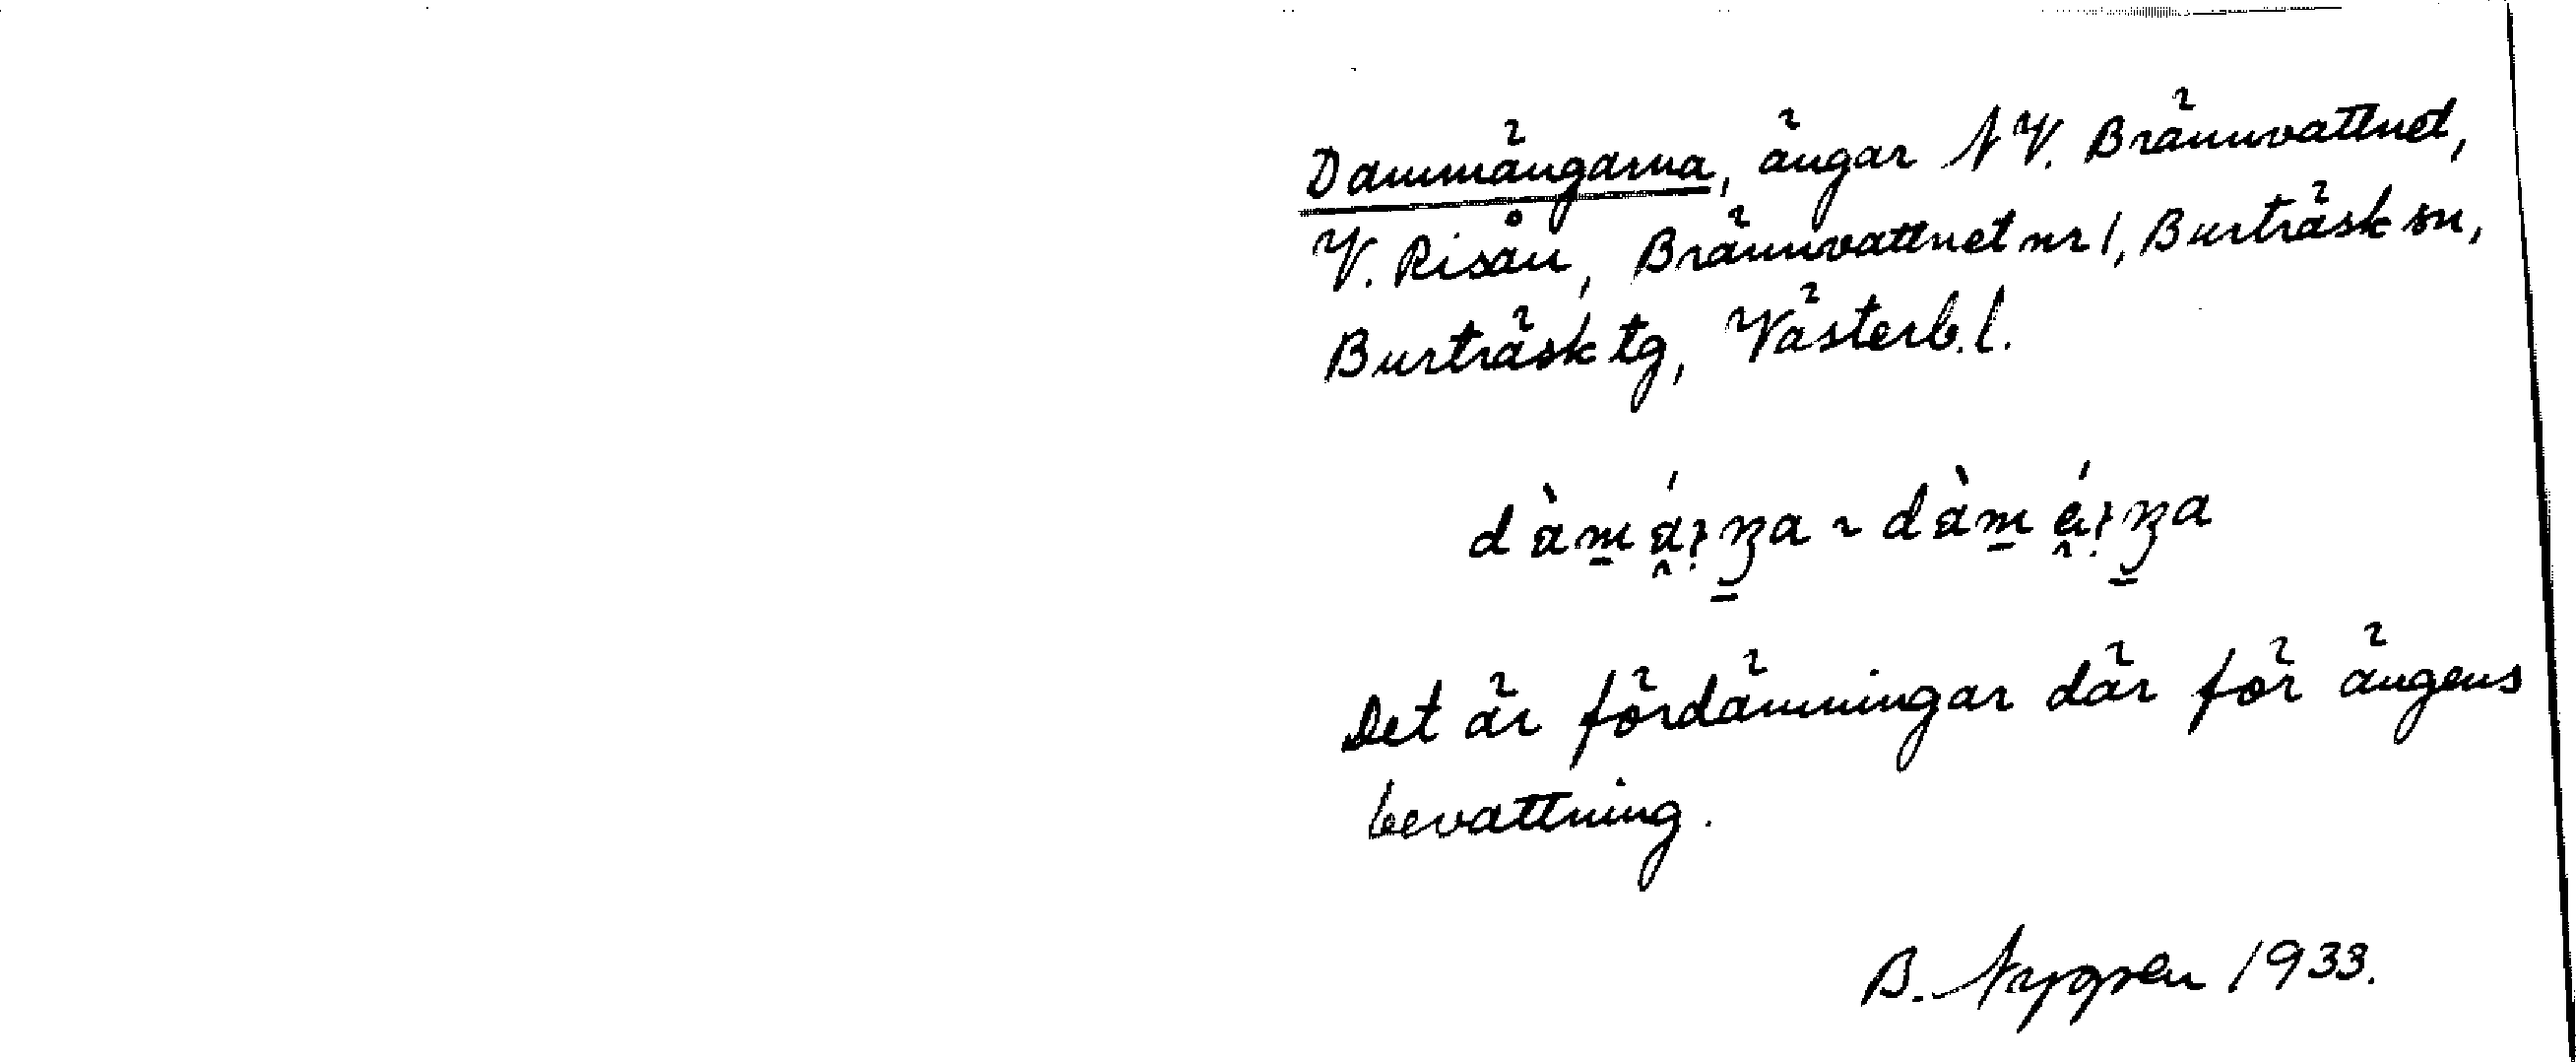 Dammängarna, ängar NV. Brännvattnet,
V. Risån, Brännvattnet nr 1, Burträsk sn,
Burträsk tg, Västerb. l.
Det är fördämningar där för ängens
bevattning.
B. Nygren 1933.